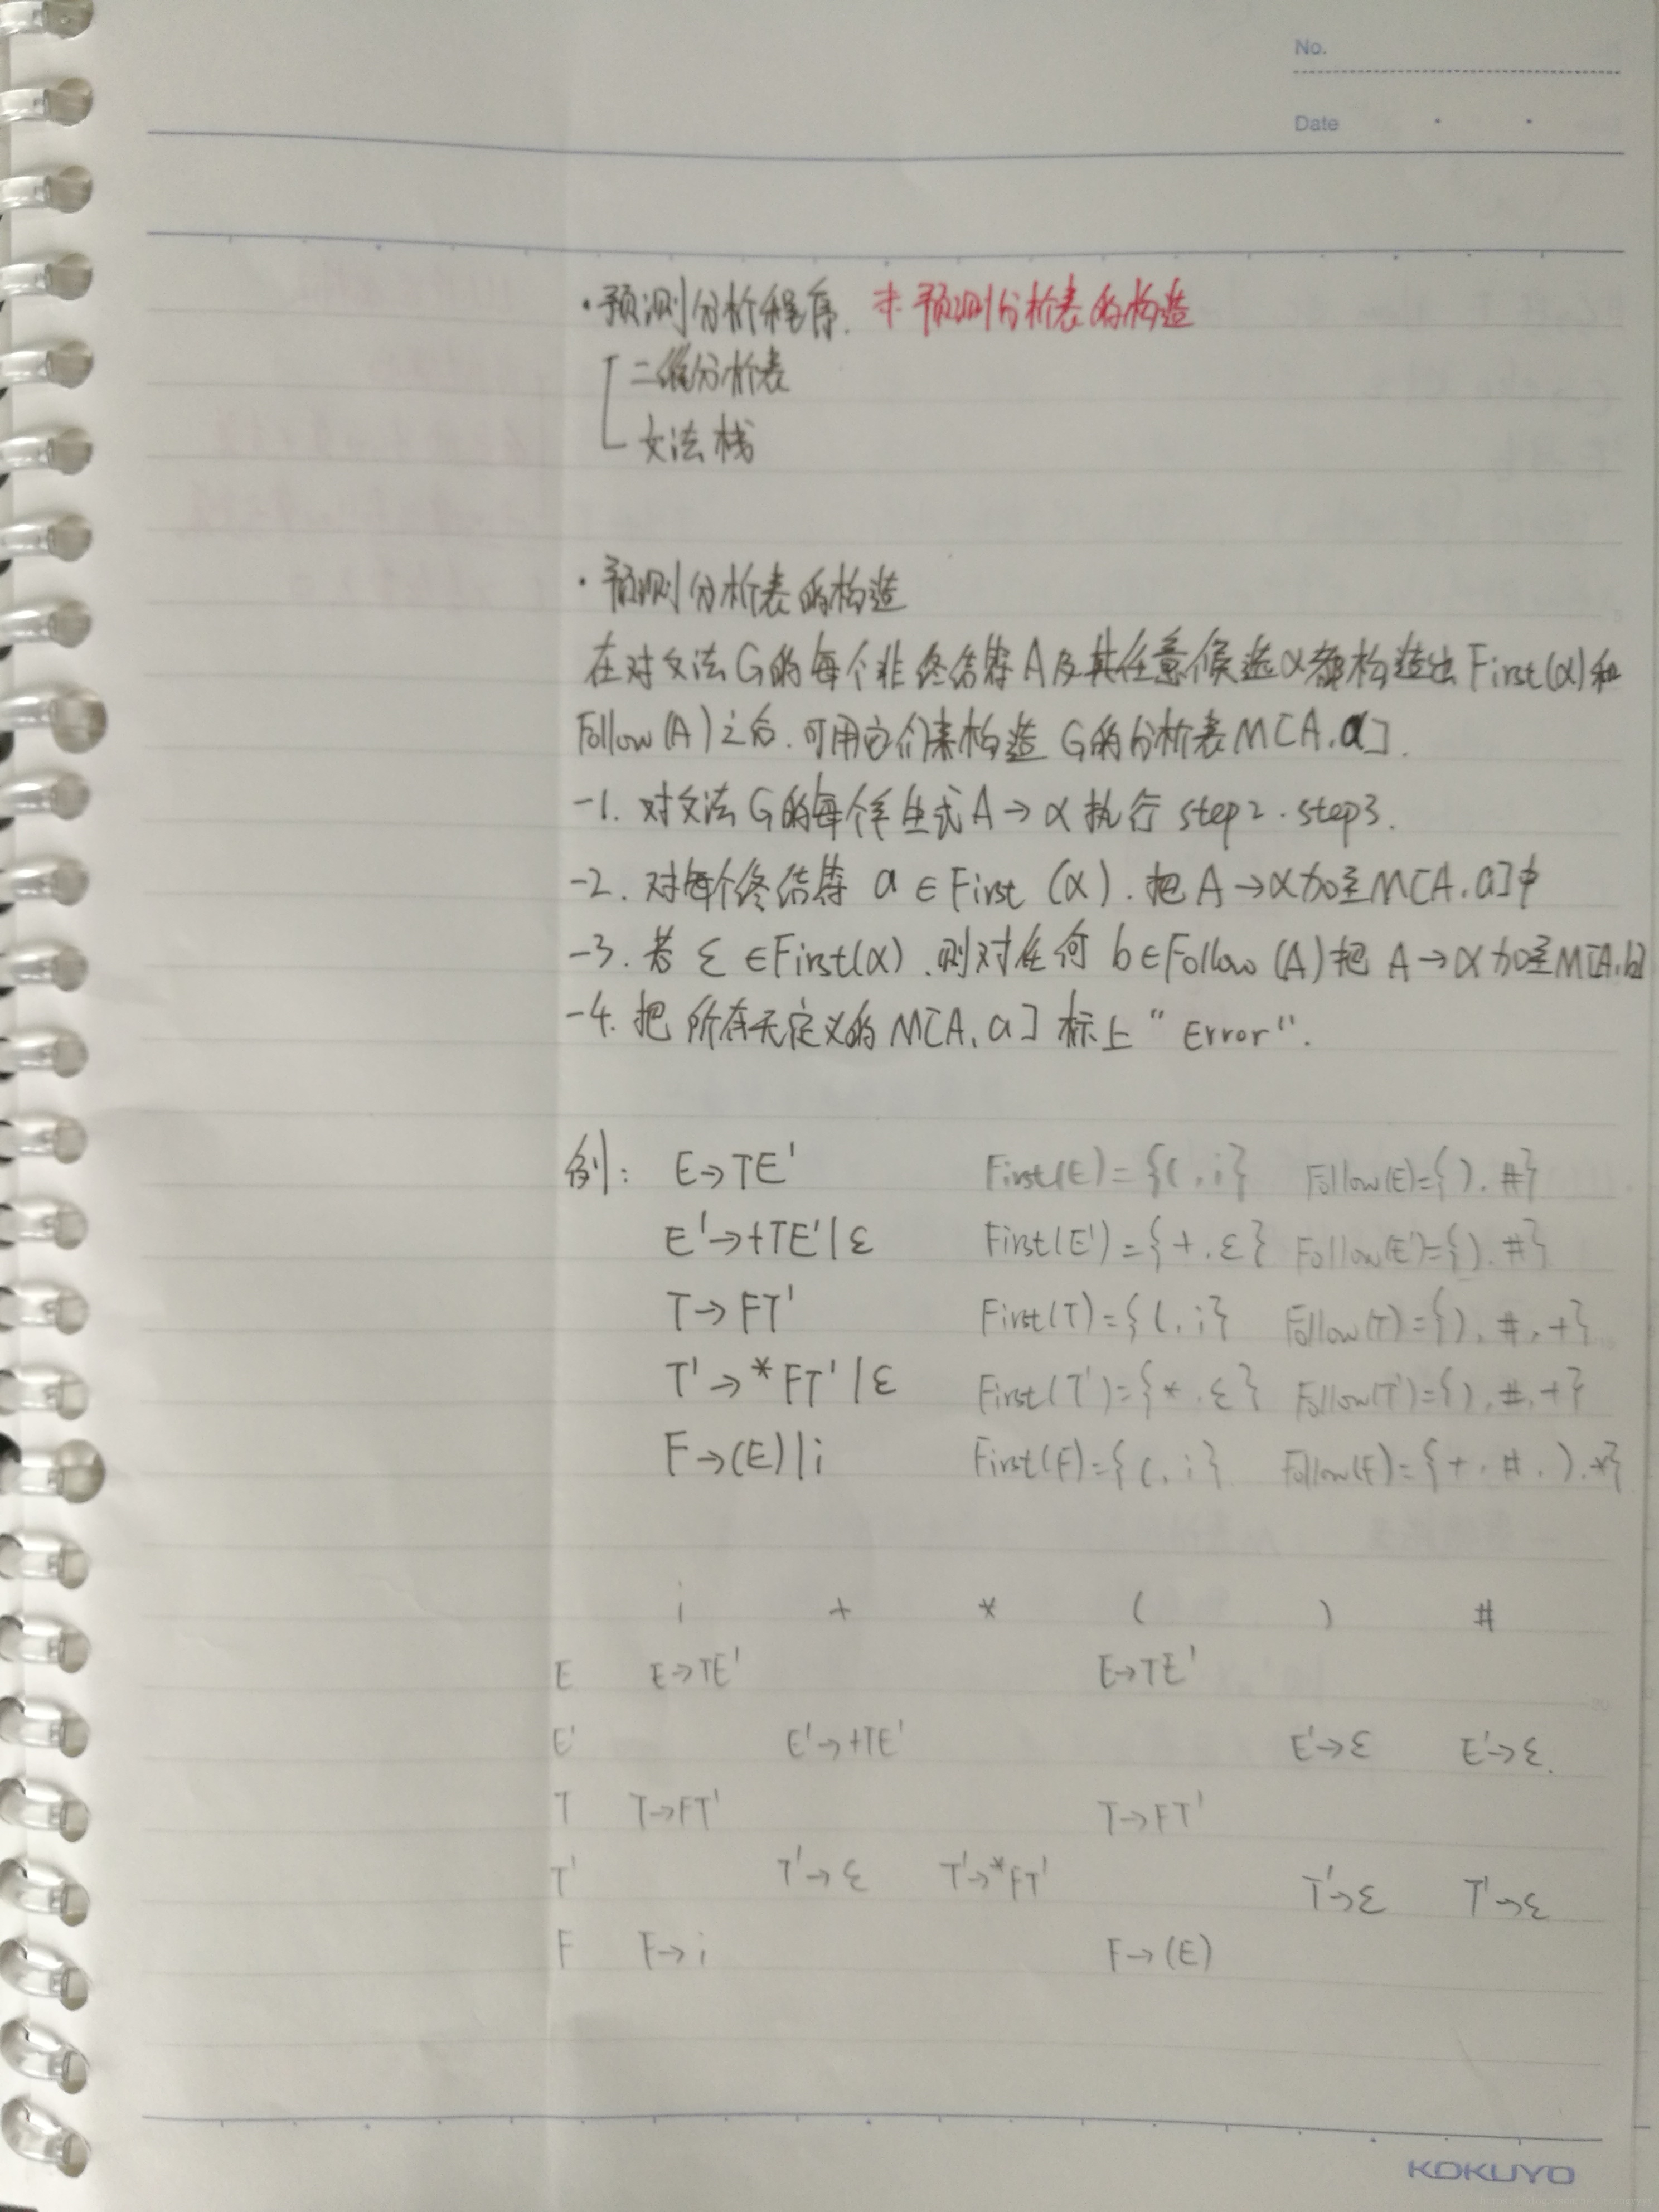 No.
Date
·预测分析程序. 求预测分析表的构造
二维分析表
文法栈
·预测分析表的构造
在对文法G的每个非终结符A及其任意候选α都构造出First(α)和
Follow(A)之后.可用它们来构造G的分析表M[A.a].
-1. 对文法G的每个产生式A→α执行 step2.step3.
-2. 对每个终结符 a∈First(α).把A→α加至M[A.a]中
-3. 若ε∈First(α).则对任何 b∈Follow(A)把 A→α加至M[A.b]
-4. 把所有无定义的M[A.a]标上"Error".
例: E→TE' First(E)={(.i} Follow(E)={).#}
E'→+TE'|ε First(E')={+.ε} Follow(E')={).#}
T→FT' First(T)={(.i} Follow(T)={).#.+}
T'→*FT'|ε First(T')={*.ε} Follow(T')={).#.+}
F→(E)|i First(F)={(.i} Follow(F)={+.#.).*}
i + * ( ) #
E E→TE' E→TE'
E' E'→+TE' E'→ε E'→ε.
T T→FT' T→FT'
T' T'→ε T'→*FT' T'→ε T'→ε
F F→i F→(E)
KOKUYO